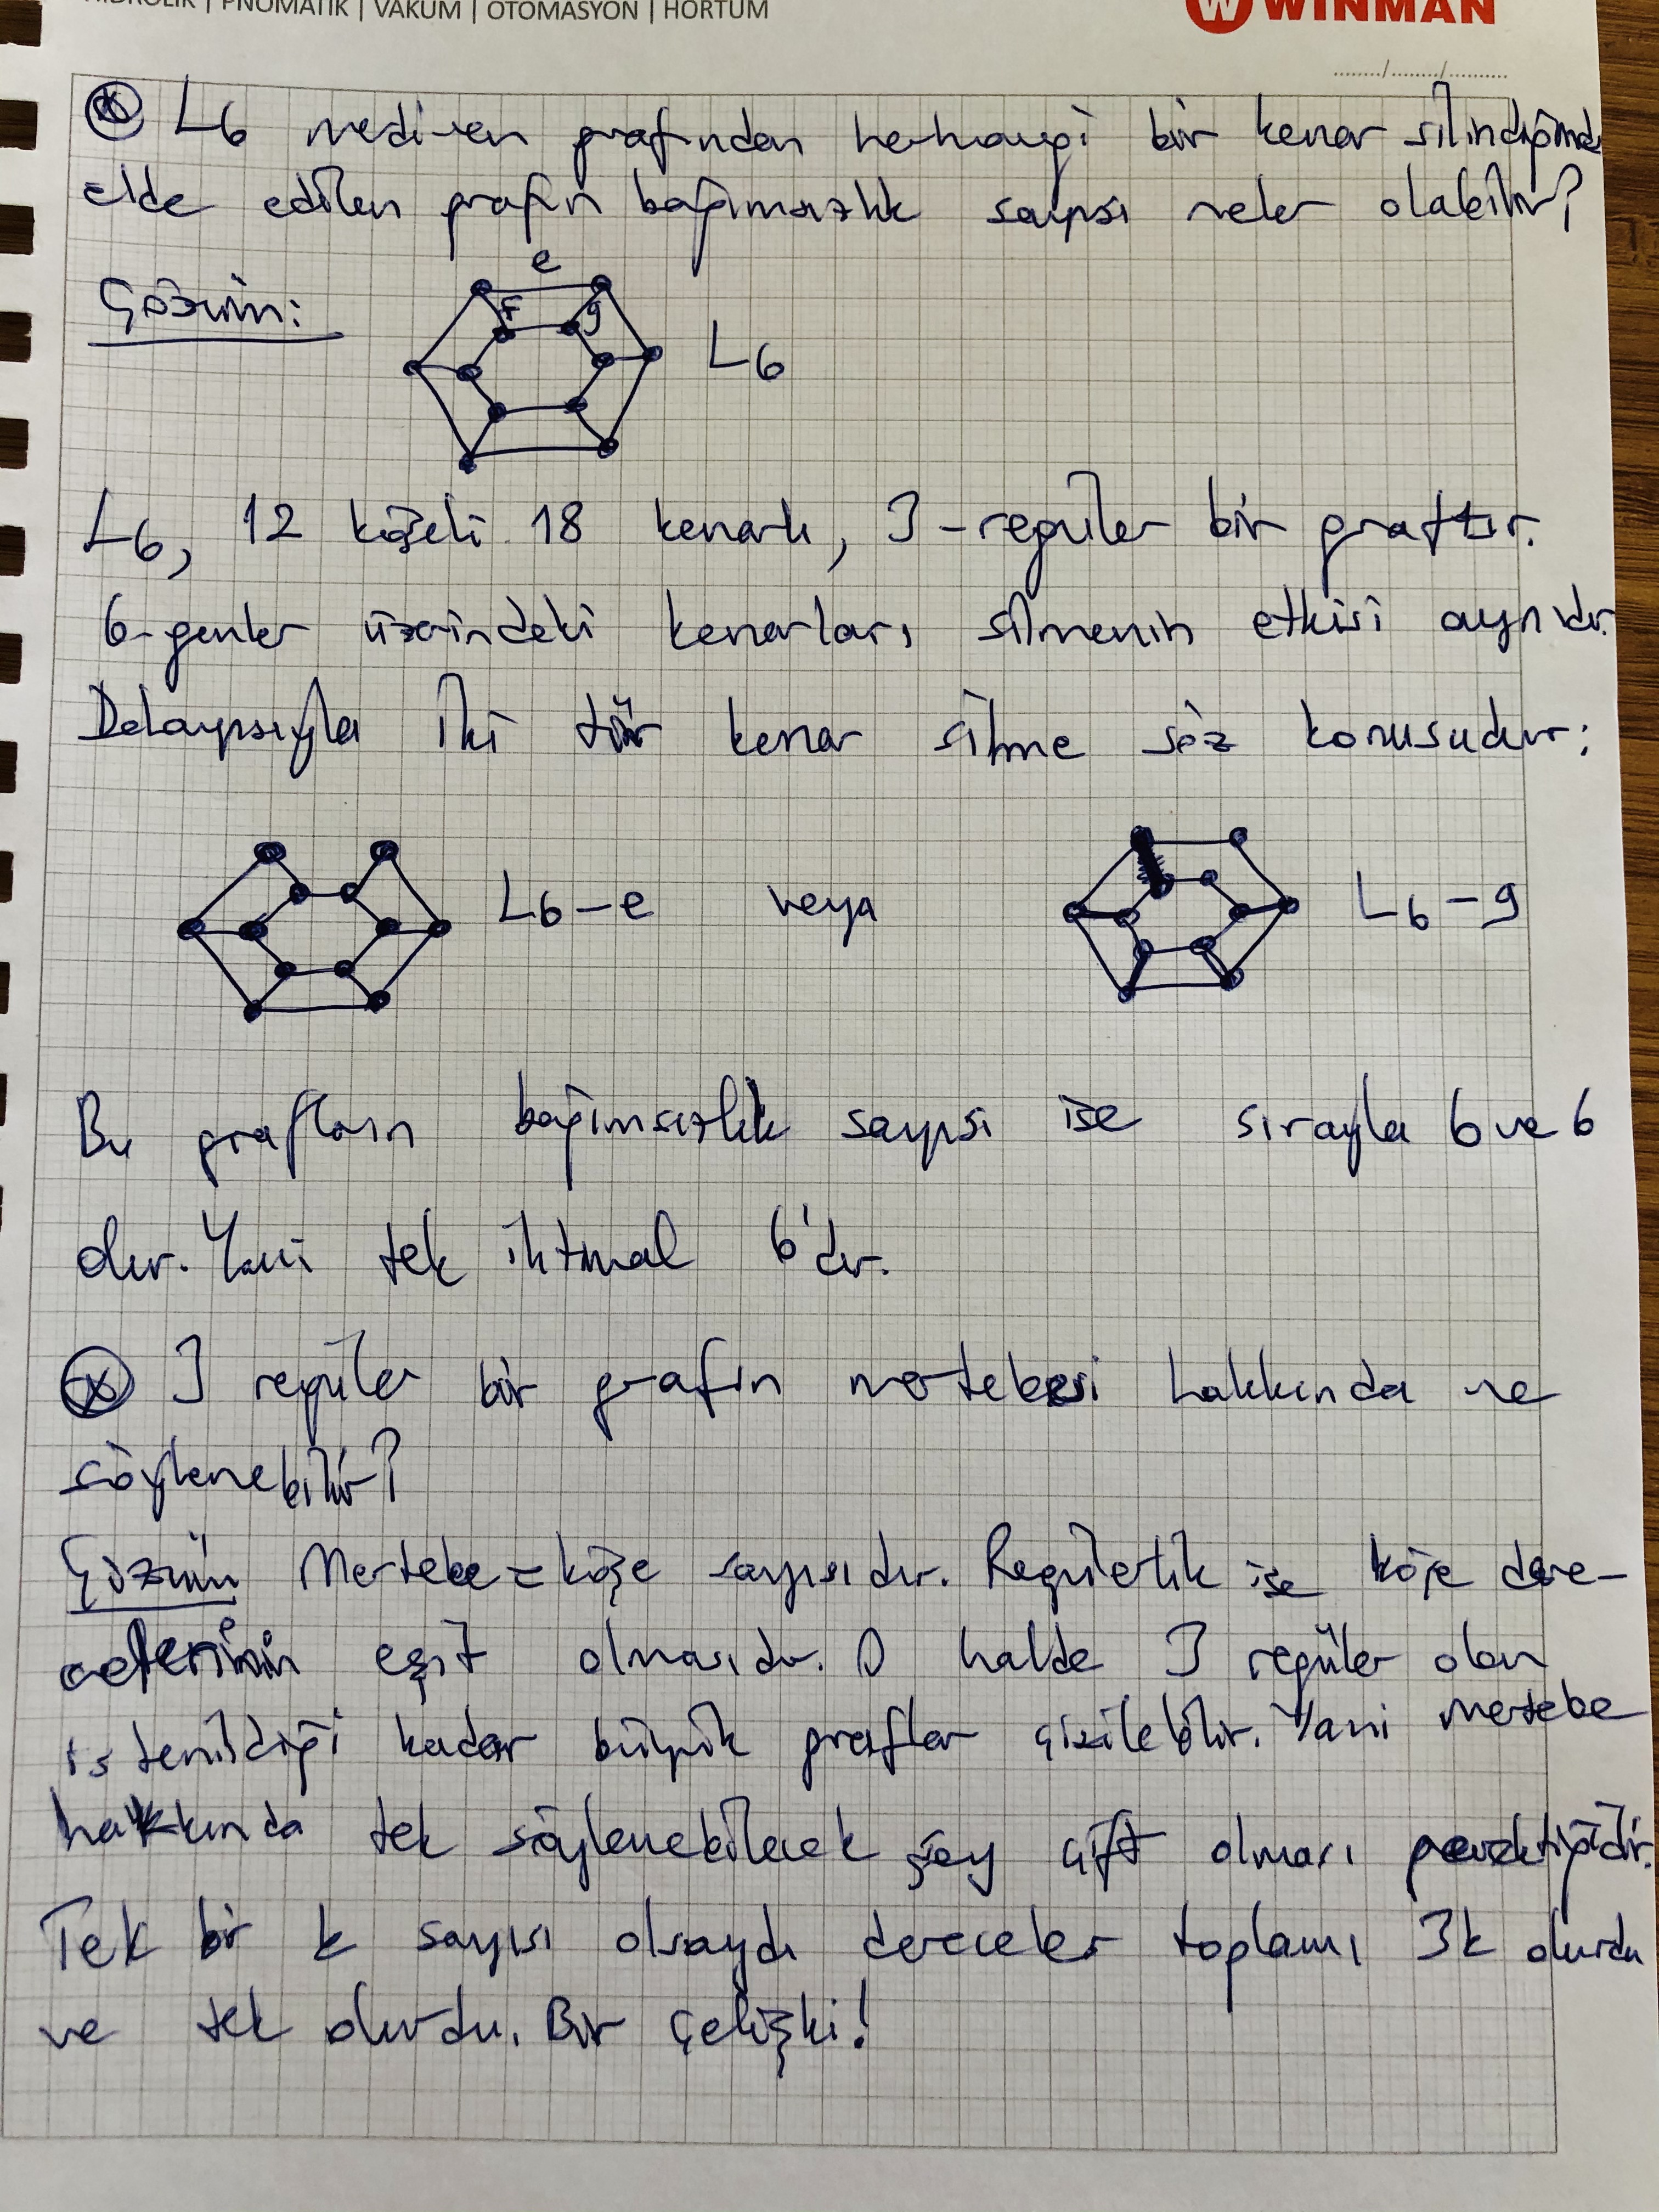 HİDROLİK | PNÖMATİK | VAKUM | OTOMASYON | HORTUM
W WINMAN
......../......../..........
L6 mediven grafından herhangi bir kenar silindiğinde
elde edilen grafın bağımsızlık sayısı neler olabilir?
Çözüm:
e
f g
L6
L6, 12 köşeli 18 kenarlı, 3-regüler bir graftır.
6-genler üzerindeki kenarları silmenin etkisi aynıdır.
Dolayısıyla iki tür kenar silme söz konusudur:
L6-e veya L6-g
Bu grafların bağımsızlık sayısı ise sırayla 6 ve 6
dır. Yani tek ihtimal 6'dır.
3 regüler bir grafın mertebesi hakkında ne
söylenebilir?
Çözüm Mertebe = köşe sayısıdır. Regülerlik ise köşe dere-
celerinin eşit olmasıdır. O halde 3 regüler olan
istenildiği kadar büyük graflar çizilebilir. Yani mertebe
hakkında tek söylenebilecek şey çift olması gerektiğidir.
Tek bir k sayısı olsaydı dereceler toplamı 3k olurdu
ve tek olurdu. Bir çelişki!